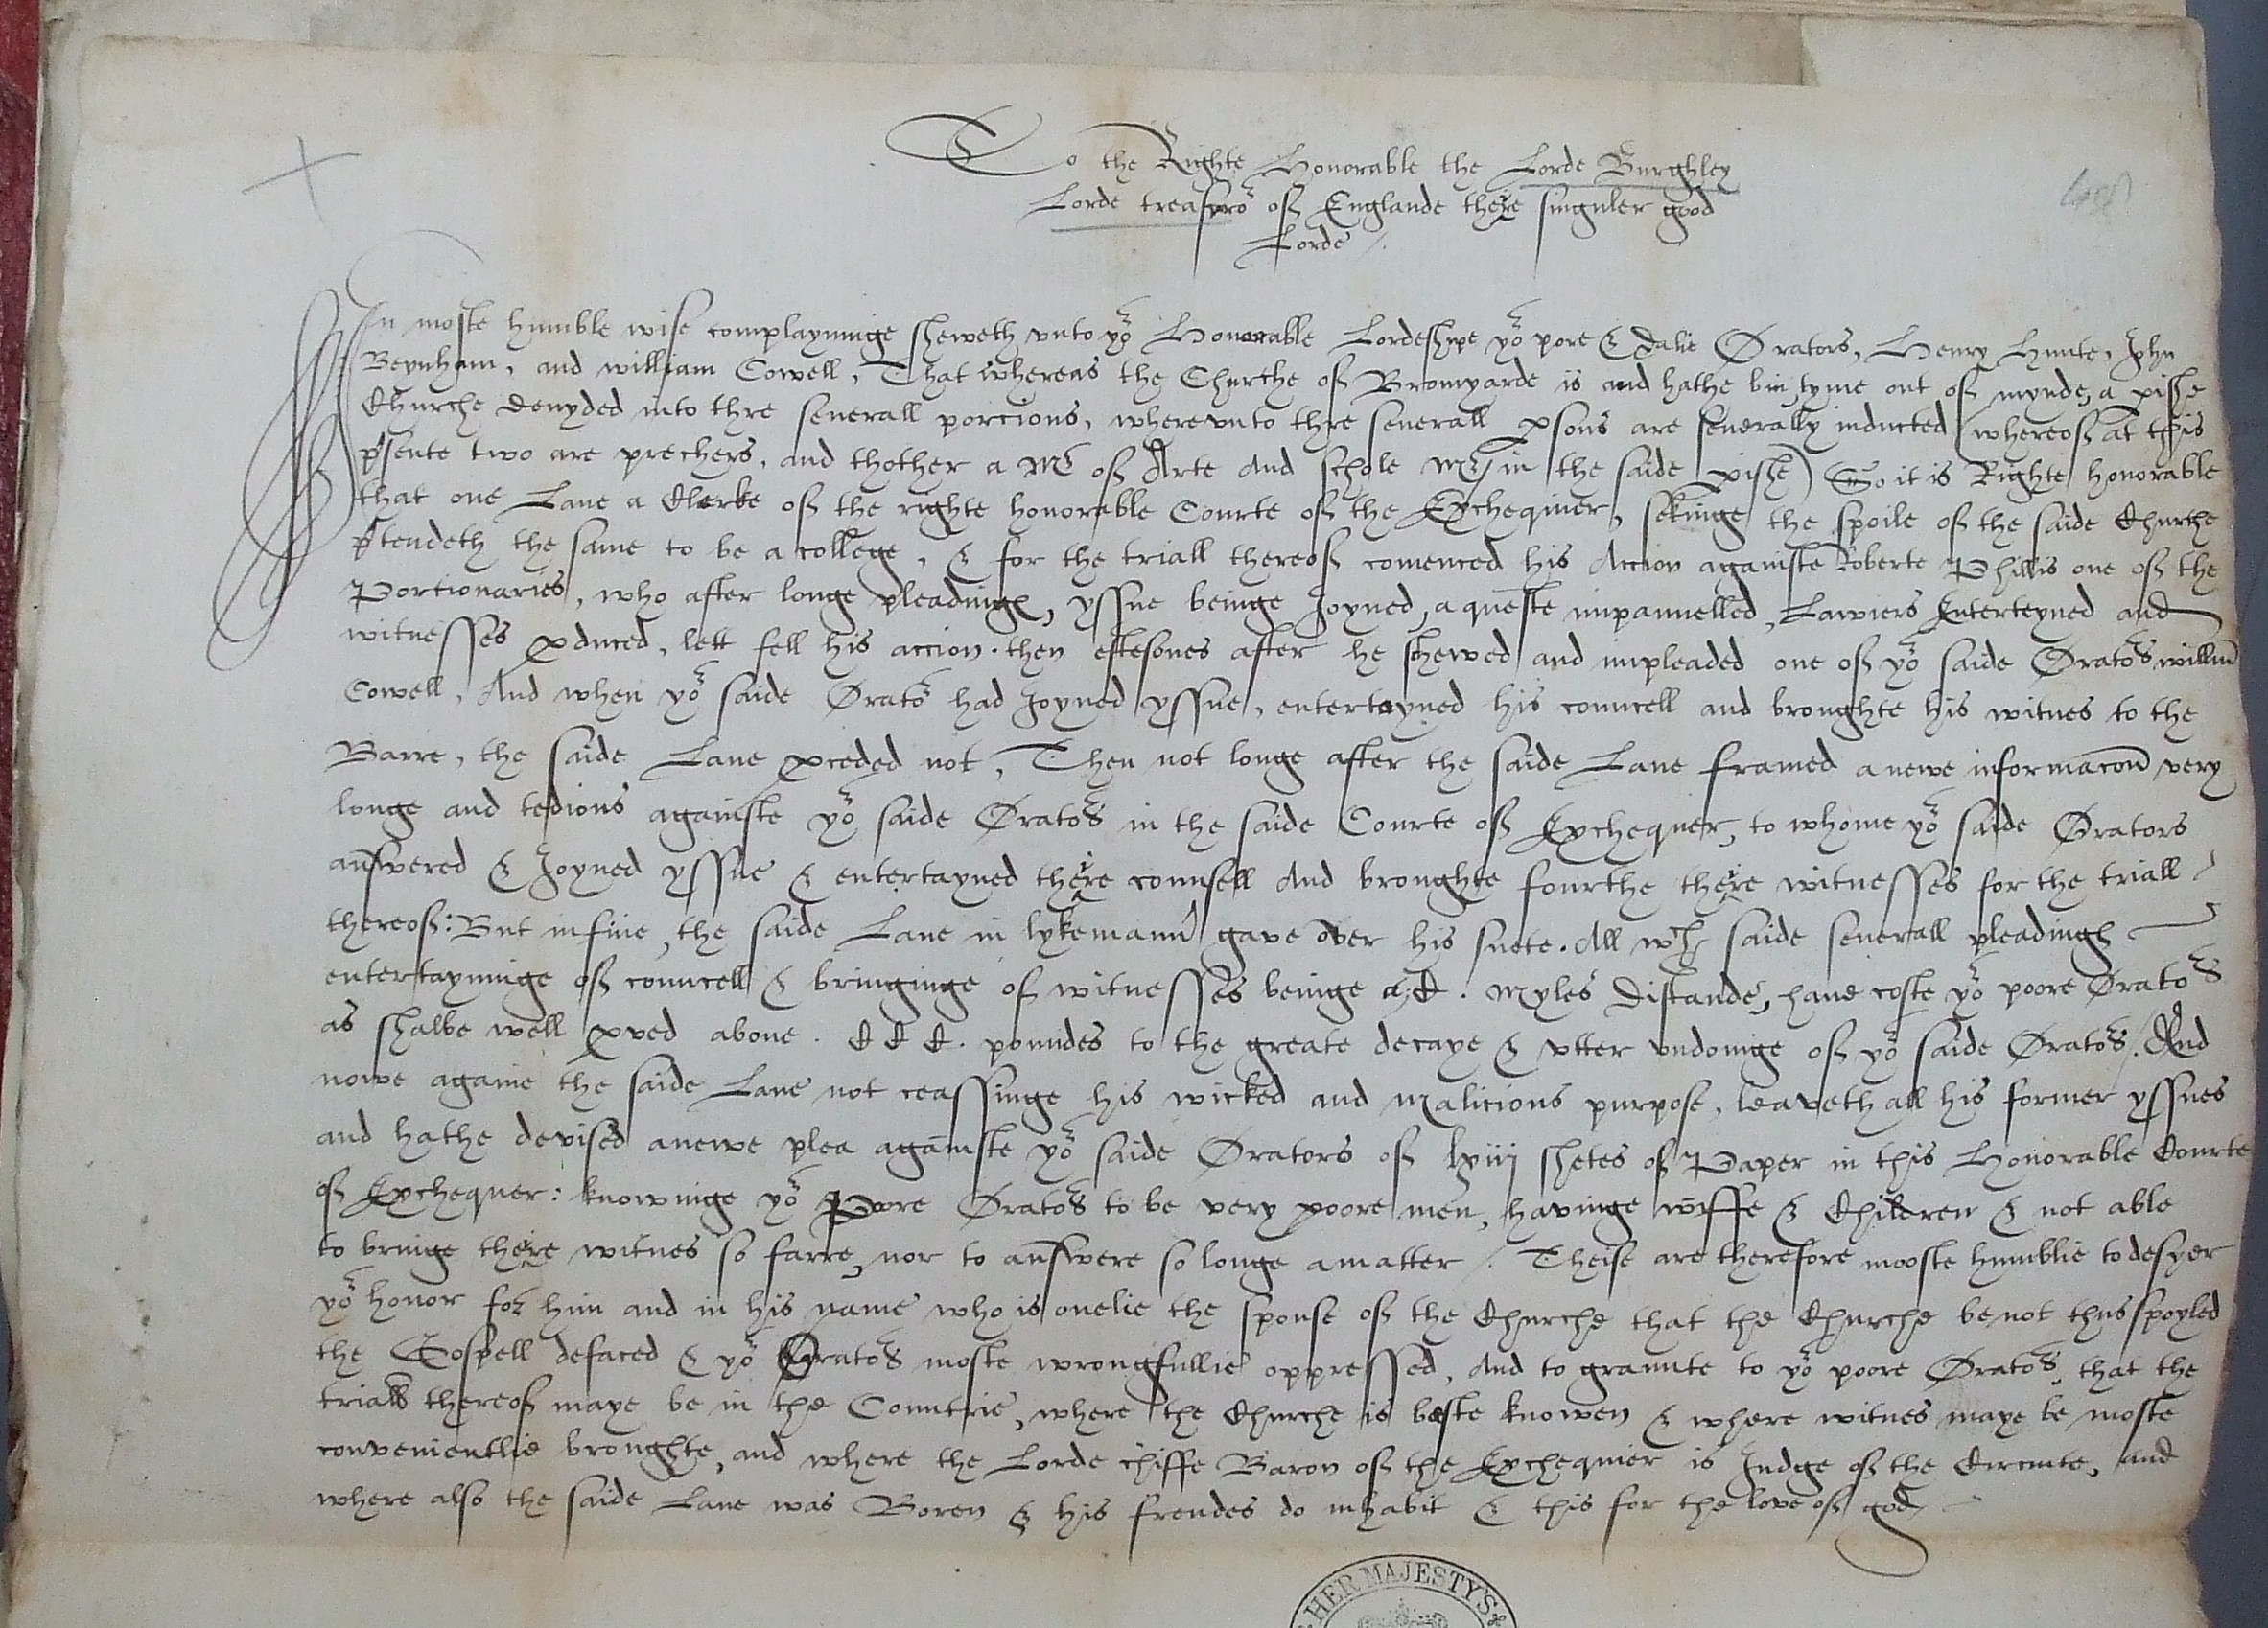 To the Righte Honorable the Lorde Burghley
Lorde treasoro^r of Englande theyre singuler good
Lorde /.
In moste humble wise complayninge sheweth vnto yo^r Honorable Lordeshipe yo^r pore & dalie Orators, Henry Hunte, John
Beynham, and william Cowell, That whereas the Churche of Bromyarde is and hathe bin tyme out of mynde, a pishe
Churche devyded into thre severall porcions, wherevnto thre severall psons are severally inducted (whereof at this
psente two are prechers, and thother a M^r of Arte And schole M^r in the saide pishe) So it is Righte honorable
that one Lane a Clerke of the righte honorable Courte of the Exchequier, sekinge the spoile of the saide Churche
ptendeth the same to be a college, & for the triall thereof comenced his Accion againste Roberte Phillis one of the
Portionaries, who after longe pleadinges, yssue beinge Joyned, a queste impannelled, Lawiers Enterteyned and
witnesses pduced, lett fell his accion. then eftesones after he shewed and impleaded one of yo^r saide Orato^rs willm
Cowell, And when yo^r saide Orato^r had Joyned yssue, entertayned his councell and broughte his witnes to the
Barre, the saide Lane pceded not, Then not longe after the saide Lane framed a newe informacon very
longe and tedious againste yo^r saide Orato^rs in the saide Courte of Exchequer, to whome yo^r saide Orators
answered & Joyned yssue & entertayned theyre counsell And broughte fourthe theyre witnesses for the triall
thereof: But in fine, the saide Lane in lyke mann^r gave over his suete. All w^ch saide severall pleadinges
entertayninge of councell & bringinge of witnesses beinge a C. myles distande, have coste yo^r poore Orato^rs
as shalbe well pved above. C C C. poundes to the greate decaye & vtter vndoinge of yo^r saide Orato^rs. And
nowe againe the saide Lane not ceassinge his wicked and malicious purpose, leaveth all his former yssues
and hathe devised a newe plea againste yo^r saide Orators of lxiiij shetes of Paper in this Honorable Courte
of Exchequer: knowinge yo^r Pore Orato^rs to be very poore men, havinge wiffe & Children & not able
to bringe theyre witnes so farre, nor to answere so longe a matter /. Theise are therefore mooste humblie to desyer
yo^r honor for him and in his name who is onelie the spouse of the Churche that the Churche be not thus spoyled
the Gospell defaced & yo^r Orato^rs moste wrongfullie oppressed, And to graunte to yo^r poore Orato^rs, that the
triall thereof maye be in the Countrie, where the Churche is beste knowen & where witnes maye be moste
convenientlie broughte, and where the Lorde chiffe Baron of the Exchequier is Judge of the Circuite, and
where also the saide Lane was Boren & his frendes do inhabit & this for the love of god /
HER MAJESTY'S